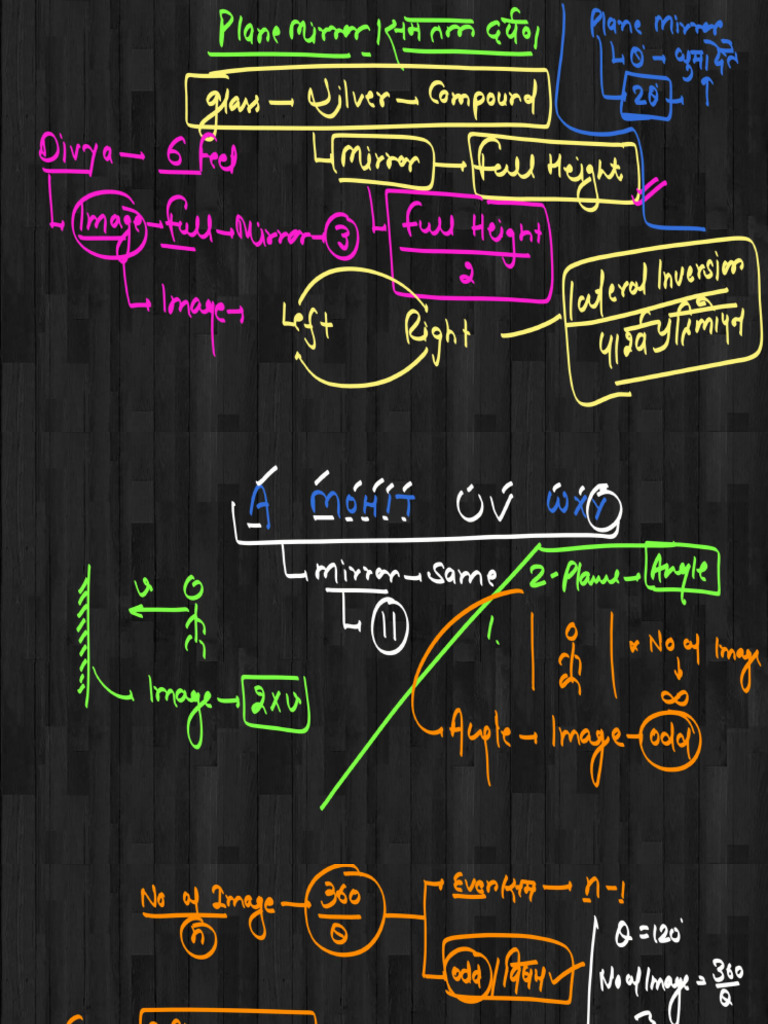 Plane Mirror / समतल दर्पण
Plane Mirror
θ - घुमा देते
2θ
glass - Silver - Compound
Mirror - Full Height
Divya - 6 feet
Image - full - Mirror - 3
Full Height
2
Image →
Left Right
lateral Inversion
पार्श्व
A MOHIT UV WXY
Mirror - Same
11
2-Plane - Angle
1.
v
Image → 2×v
* No of Image
∞
Angle → Image - odd
No of Image - 360
n θ
Even/सम - n-1
odd / विषम
θ = 120°
No of Image = 360
θ
3